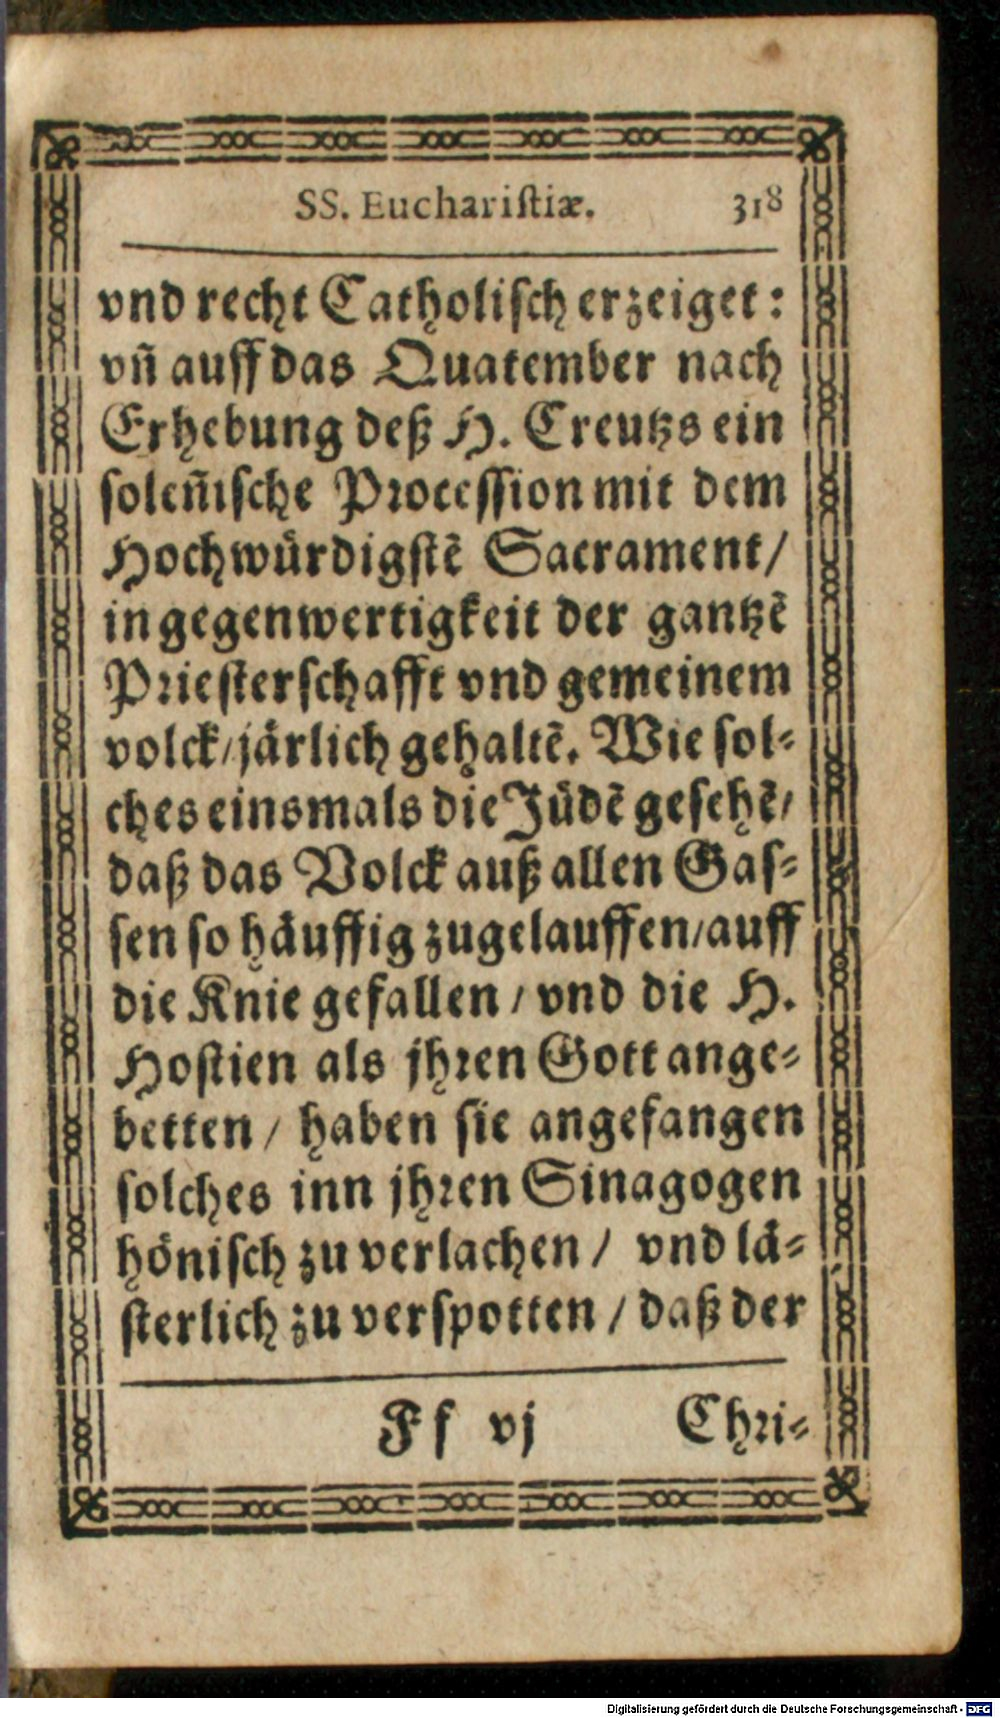 SS. Euchariſtiæ. 318
vnd recht Catholiſch erzeiget:
vñ auff das Quatember nach
Erhebung deß H. Creutzs ein
ſoleñiſche Proceſſion mit dem
Hochwürdigſtē Sacrament/
in gegenwertigkeit der gantzē
Prieſterſchafft vnd gemeinem
volck/järlich gehaltē. Wie ſol-
ches einsmals die Jüdē geſehē/
daß das Volck auß allen Gaſ-
ſen ſo häuffig zugelauffen/auff
die Knie gefallen/ vnd die H.
Hoſtien als jhren Gott ange-
betten/ haben ſie angefangen
ſolches inn jhren Sinagogen
höniſch zu verlachen/ vnd lä-
ſterlich zu verſpotten/ daß der
Ff vj Chri-
Digitalisierung gefördert durch die Deutsche Forschungsgemeinschaft - DFG